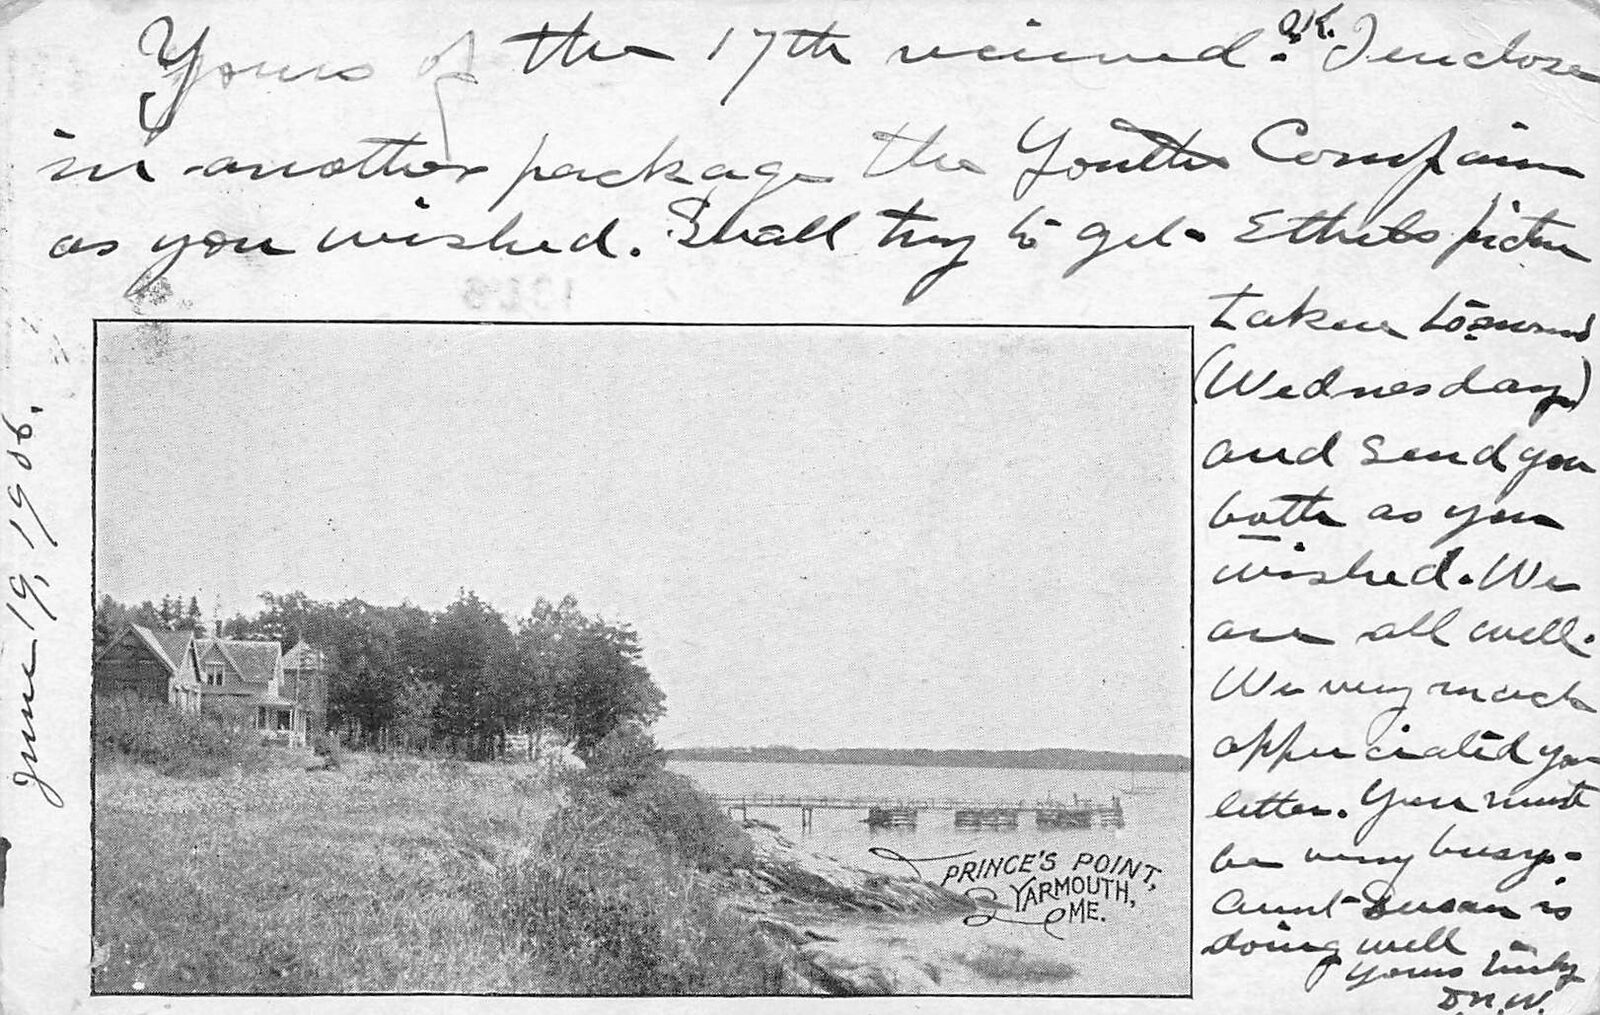 Yours of the 17th recieved. O.K. I enclose
in another package the Youths Companion
as you wished. Shall try to get Ethels picture
taken tomorrow
(Wednesday)
and send you
both as you
wished. We
are all well.
We very much
appreciated your
letter. You must
be very busy.
Aunt Susan is
doing well
Yours truly
D.N.W.
June 19, 1906.
PRINCE'S POINT,
YARMOUTH,
ME.